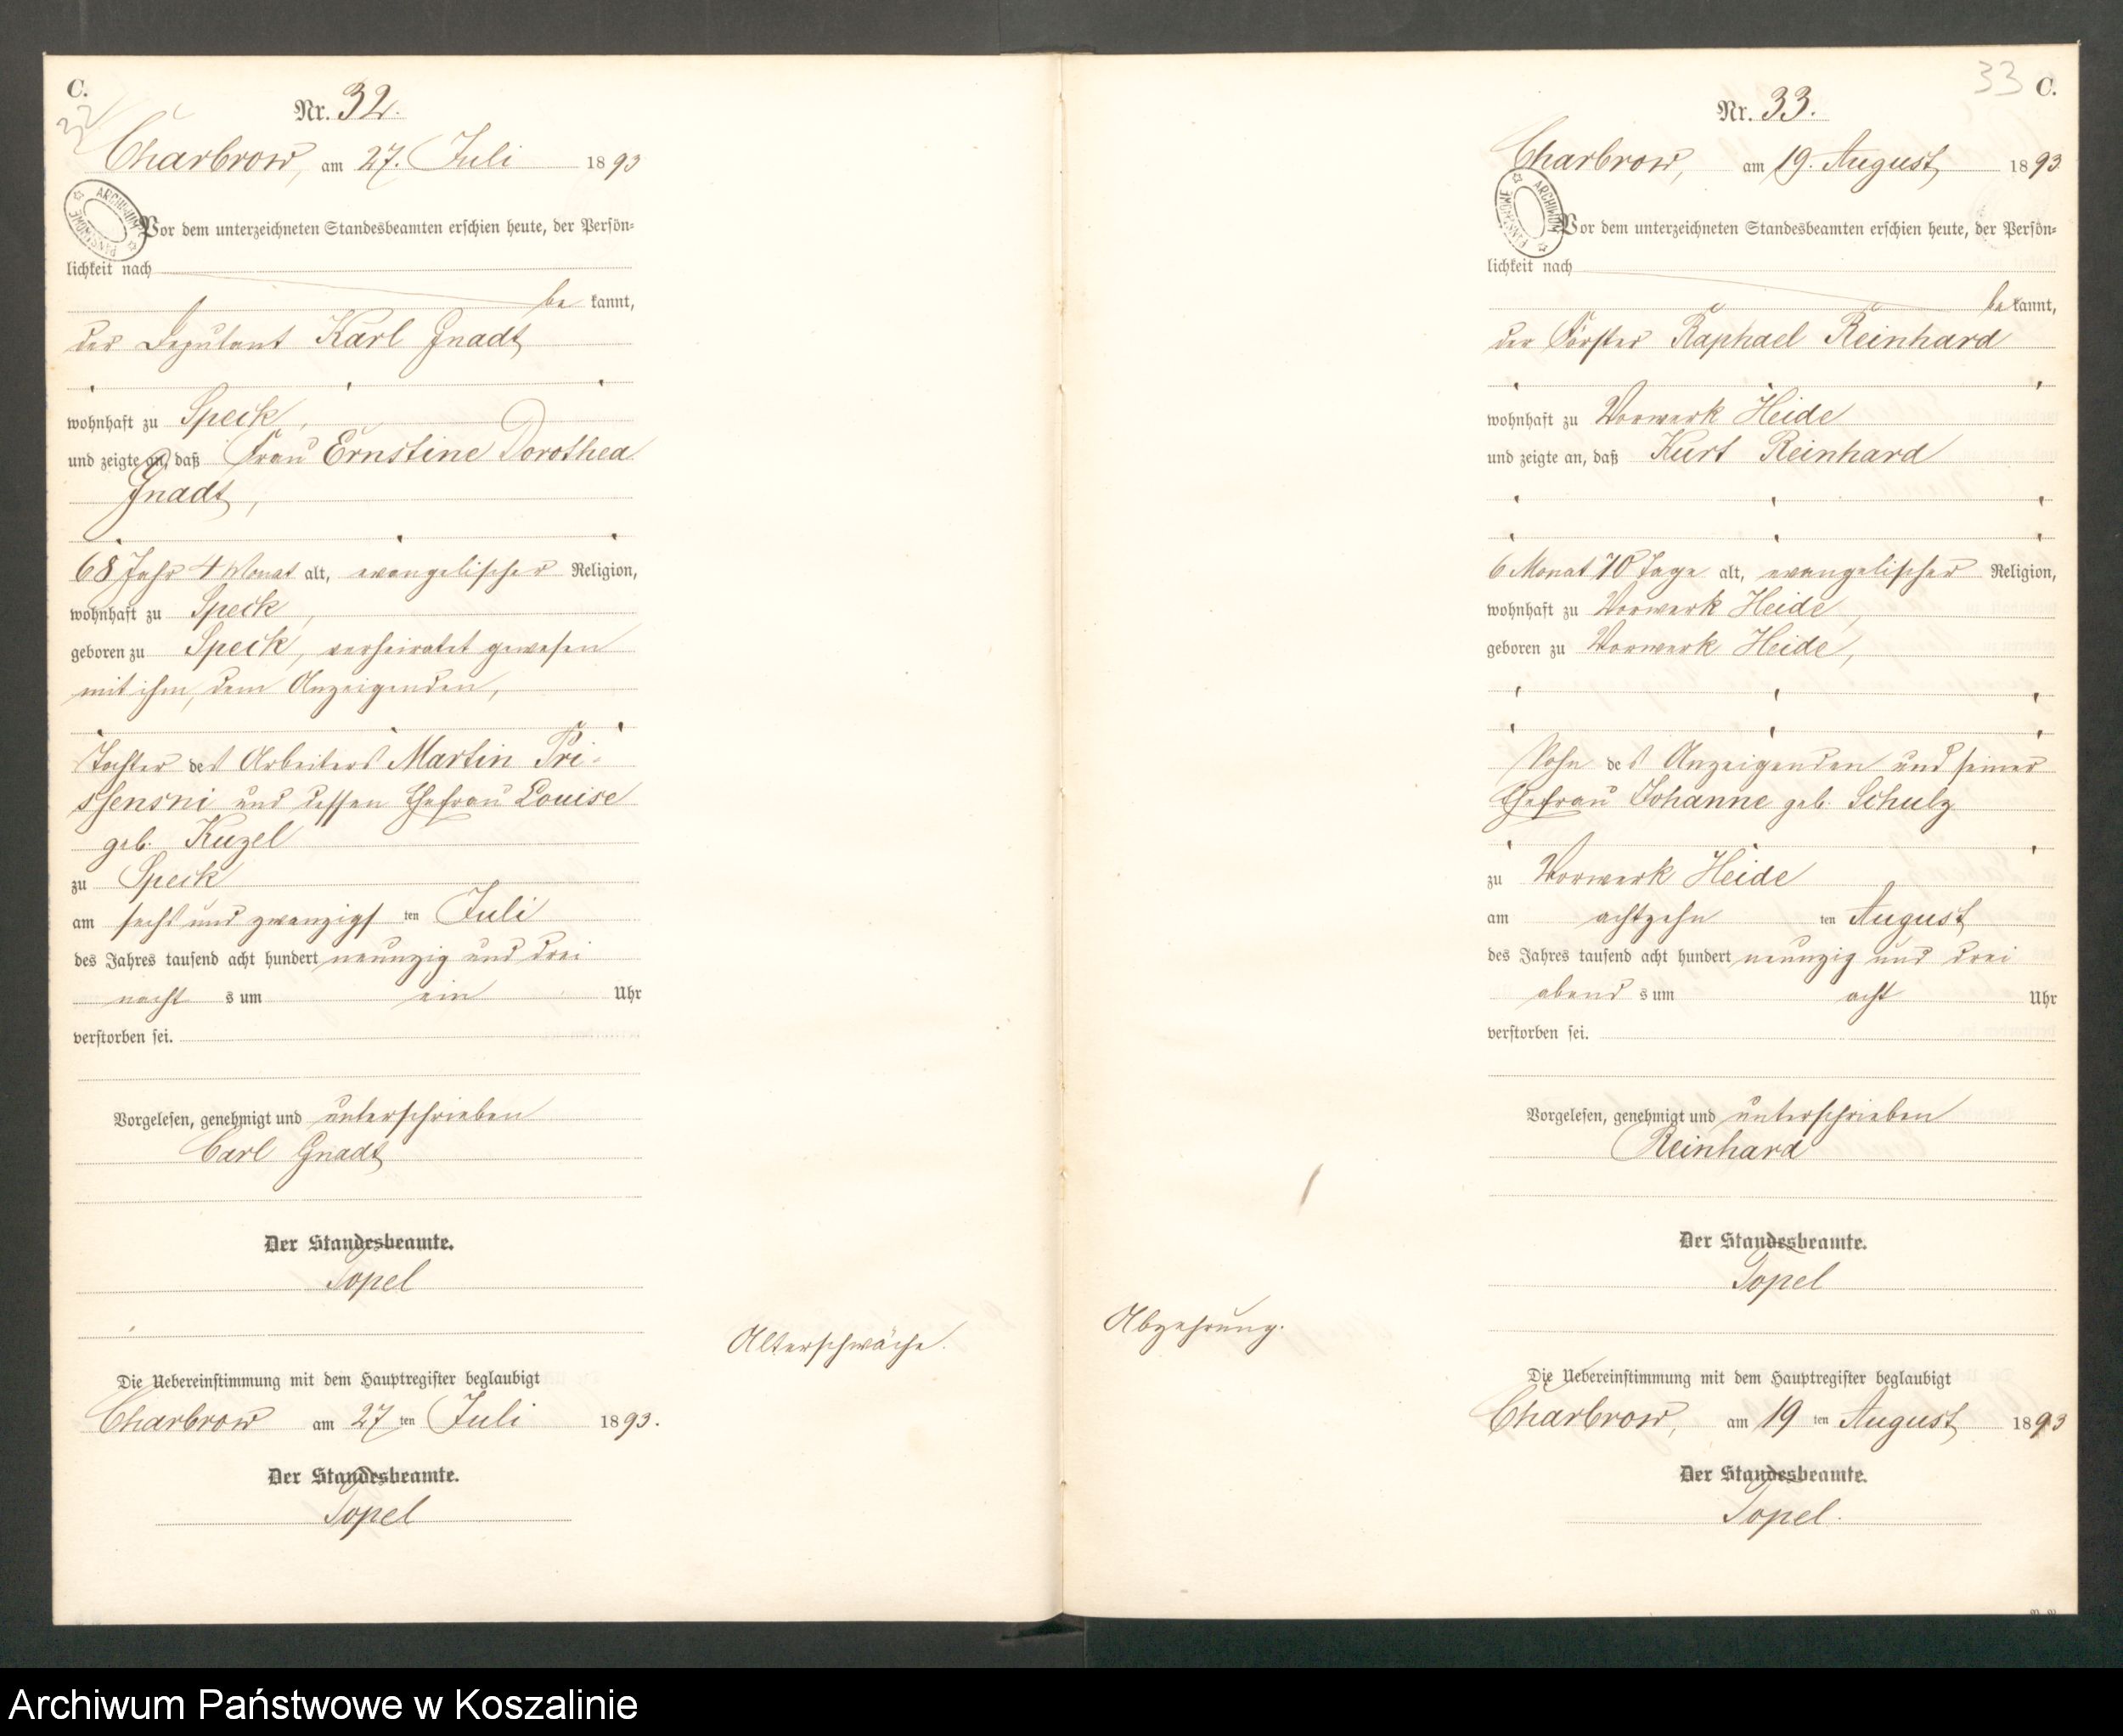 C.
32
Nr. 32.
Charbrow, am 27. Juli 1893
ARCHIWUM PAŃSTWOWE
Vor dem unterzeichneten Standesbeamten erschien heute, der Persön-
lichkeit nach
be kannt,
der Deputant Karl Gnadt
wohnhaft zu Speck,
und zeigte an, daß Frau Ernstine Dorothea
Gnadt,
68 Jahr 4 Monat alt, evangelischer Religion,
wohnhaft zu Speck,
geboren zu Speck, verheiratet gewesen
mit ihm, dem Anzeigenden,
Tochter des Arbeiters Martin Pri-
und dessen Ehefrau Louise
geb. Kuzel
zu Speck
am sechs und zwanzigsten Juli
des Jahres tausend acht hundert neunzig und drei
nachts um ein Uhr
verstorben sei.
Vorgelesen, genehmigt und unterschrieben
Carl Gnadt
Der Standesbeamte.
Topel
Alterschwäche.
Die Uebereinstimmung mit dem Hauptregister beglaubigt
Charbrow am 27 ten Juli 1893.
Der Standesbeamte.
Topel
33 C.
Nr. 33.
Charbrow, am 19. August 1893
ARCHIWUM PAŃSTWOWE
Vor dem unterzeichneten Standesbeamten erschien heute, der Persön-
lichkeit nach
be kannt,
der Förster Raphael Reinhard
wohnhaft zu Vorwerk Heide
und zeigte an, daß Kurt Reinhard
6 Monat 10 Tage alt, evangelischer Religion,
wohnhaft zu Vorwerk Heide,
geboren zu Vorwerk Heide,
Sohn des Anzeigenden und seiner
Ehefrau Johanne geb. Schulz
zu Vorwerk Heide
am achtzehn ten August
des Jahres tausend acht hundert neunzig und drei
abends um acht Uhr
verstorben sei.
Vorgelesen, genehmigt und unterschrieben
Reinhard
Der Standesbeamte.
Topel
Abzehrung.
Die Uebereinstimmung mit dem Hauptregister beglaubigt
Charbrow, am 19 ten August 1893
Der Standesbeamte.
Topel.
Archiwum Państwowe w Koszalinie